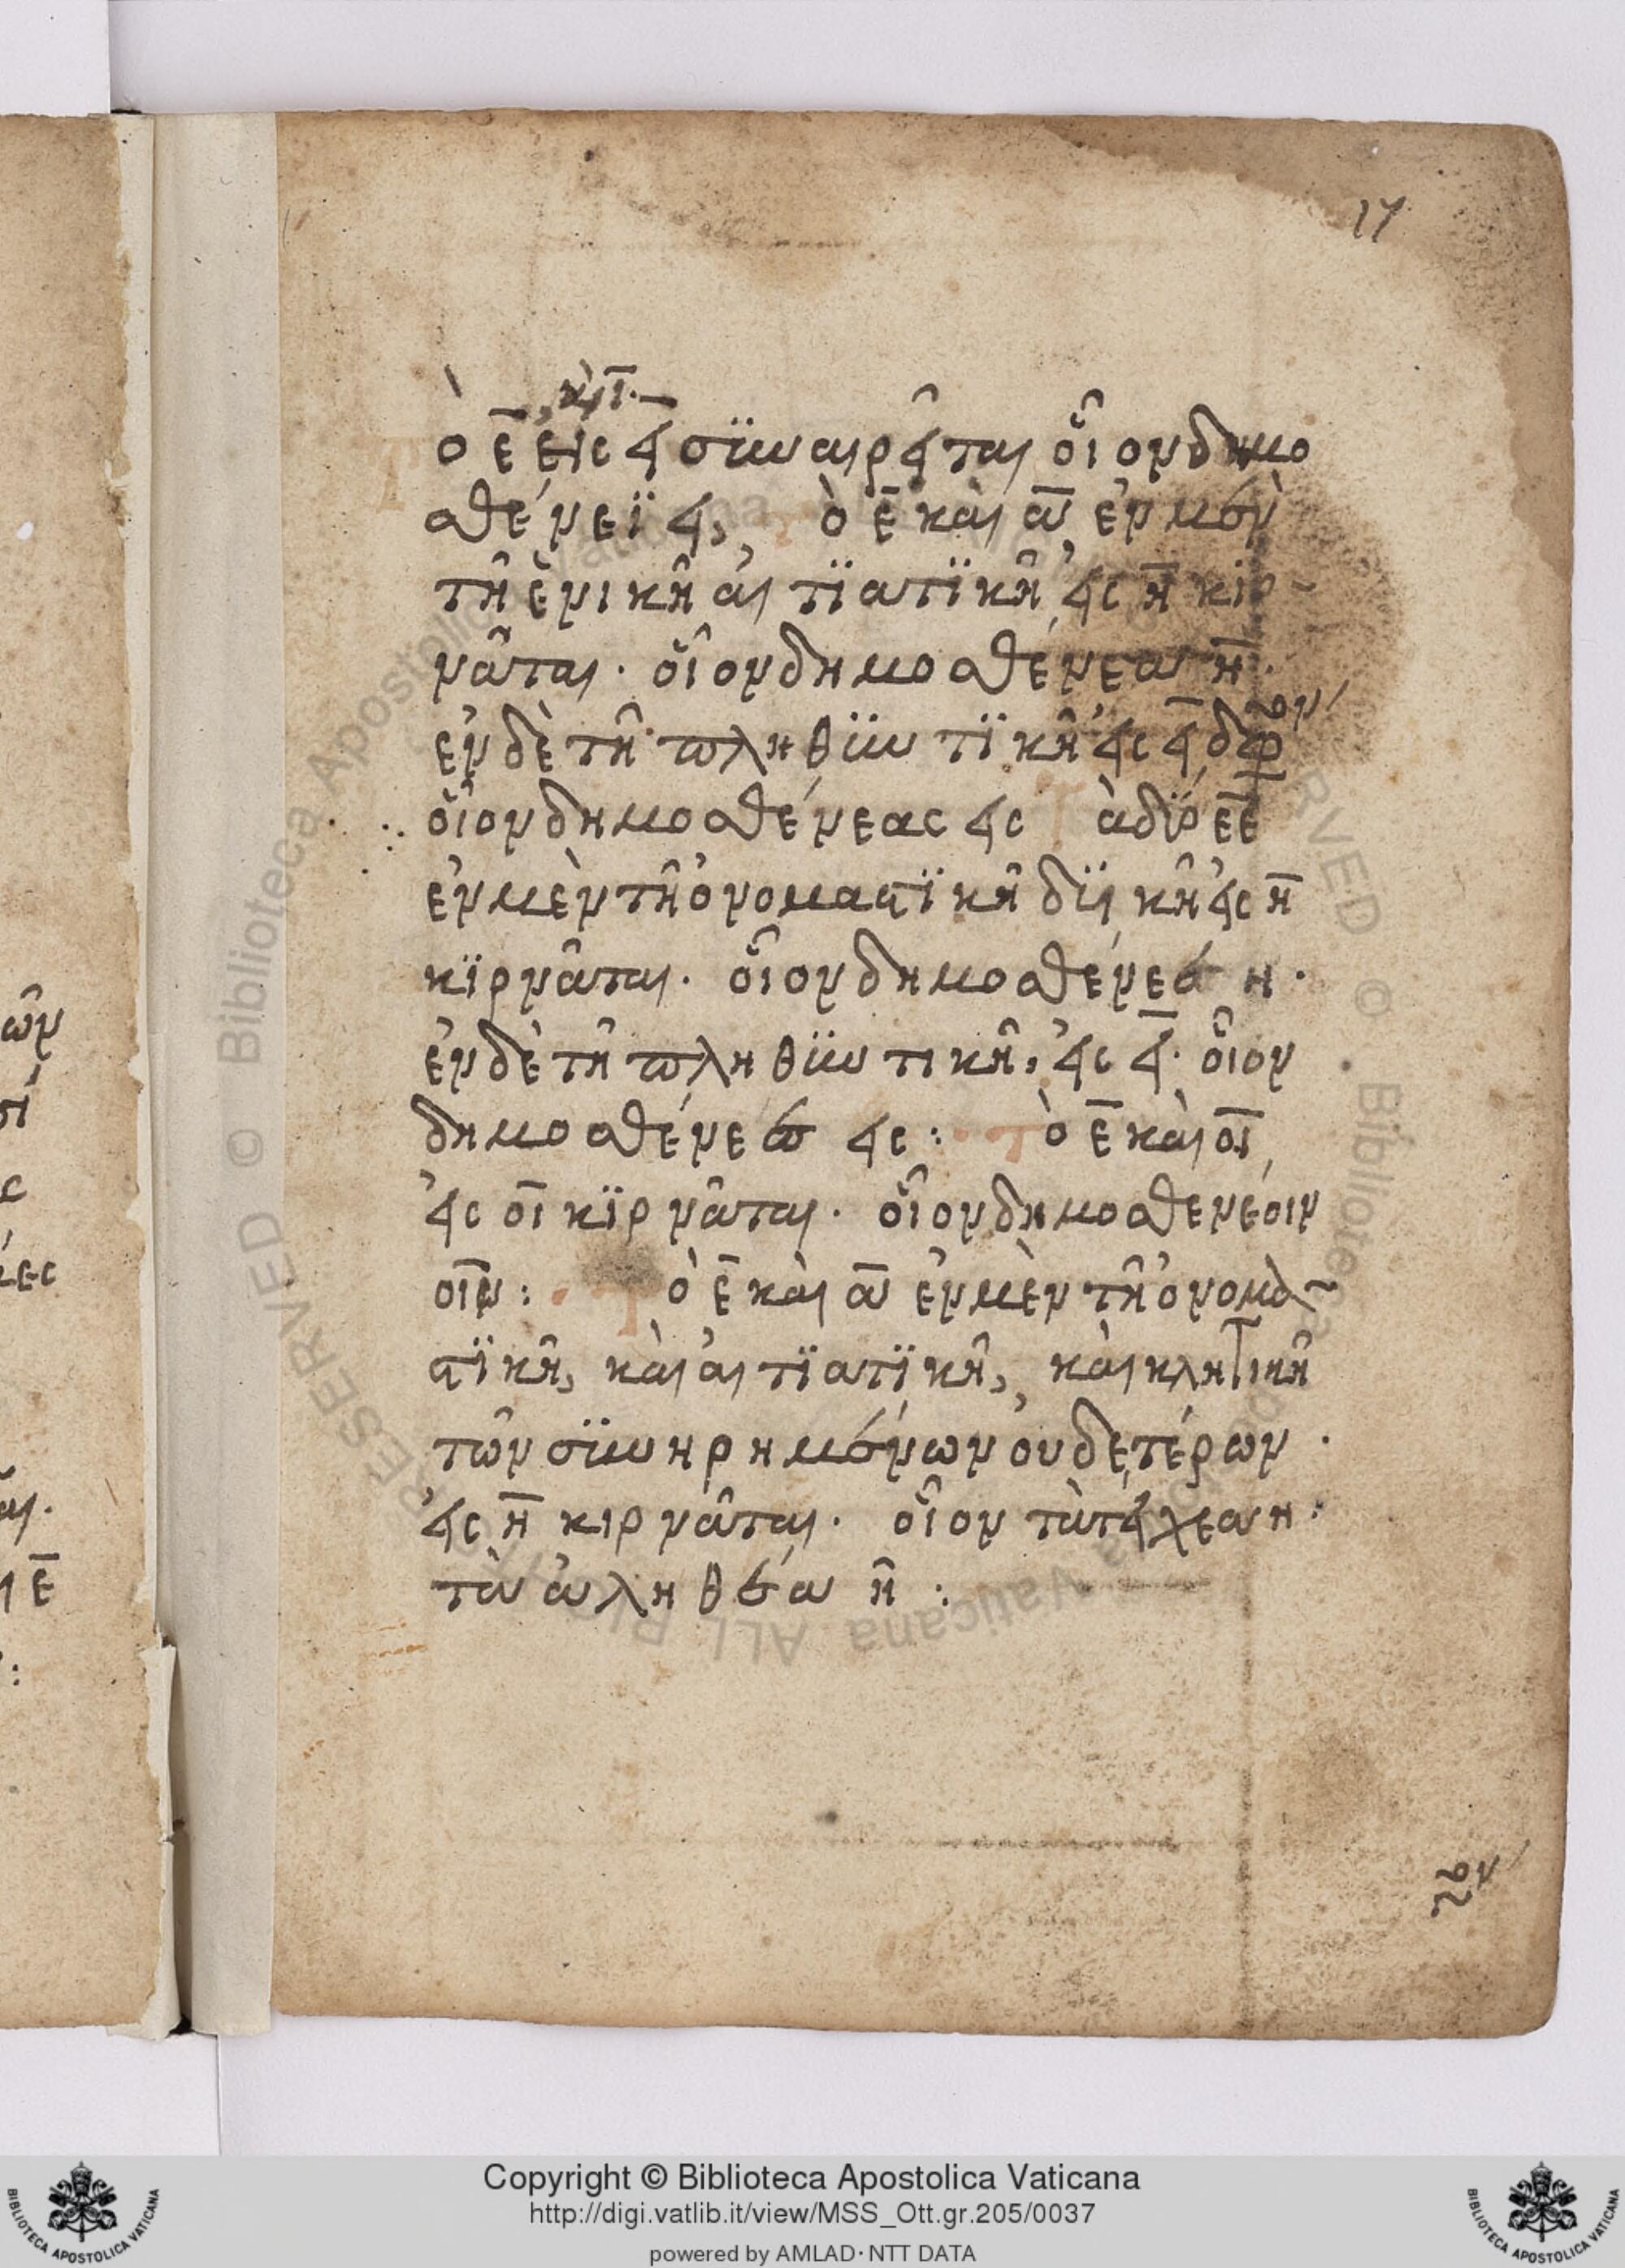 17
καὶ ῑ·
ὸ ε̄ εἰς εῑ συναιρεῖται οἷον δημο
σθένεϊ ει, ὸ ε̄ καὶ ᾱ ἐν μὲν
τῆ ἑνικῆ αἰτϊατϊκῆ εἰς η̄ κιρ-
νᾶται· οἷον δημοσθένεα η̄·
ἐν δὲ τῆ πληθϋντϊκῆ εἰς εῑ δι
οἷον δημοσθένεας εις ὰ δύο ε̄ε̄
ἐν μὲν τῆ ὀνομαστϊκῆ δϋϊκῆ εἰς η̄
κϊρνᾶται· οἷον δημοσθένεε η·
ἐν δὲ τῆ πληθϋντικῆ, εἰς εῑ· οἷον
δημοσθένεες εις: τὸ ε̄ καὶ οῑ,
εἰς οῑ κϊρνᾶται· οἷον δημοσθενέοιν
οῖν: τὸ ε̄ καὶ ᾱ ἐν μὲν τῆ ὀνομα
στϊκῆ, καὶ αἰτϊατϊκῆ, καὶ κλητικῆ
τῶν σϋνηρημένων οὐδετέρων·
εἰς η̄ κιρνᾶται· οἷον τὰ τείχεα η:
τὰ ἀληθέα ῆ:
ων
ῶν
τί
ς
ες
αι·
ε̄
:
Copyright © Biblioteca Apostolica Vaticana
http://digi.vatlib.it/view/MSS_Ott.gr.205/0037
powered by AMLAD·NTT DATA
BIBLIOTECA APOSTOLICA VATICANA
BIBLIOTECA APOSTOLICA VATICANA